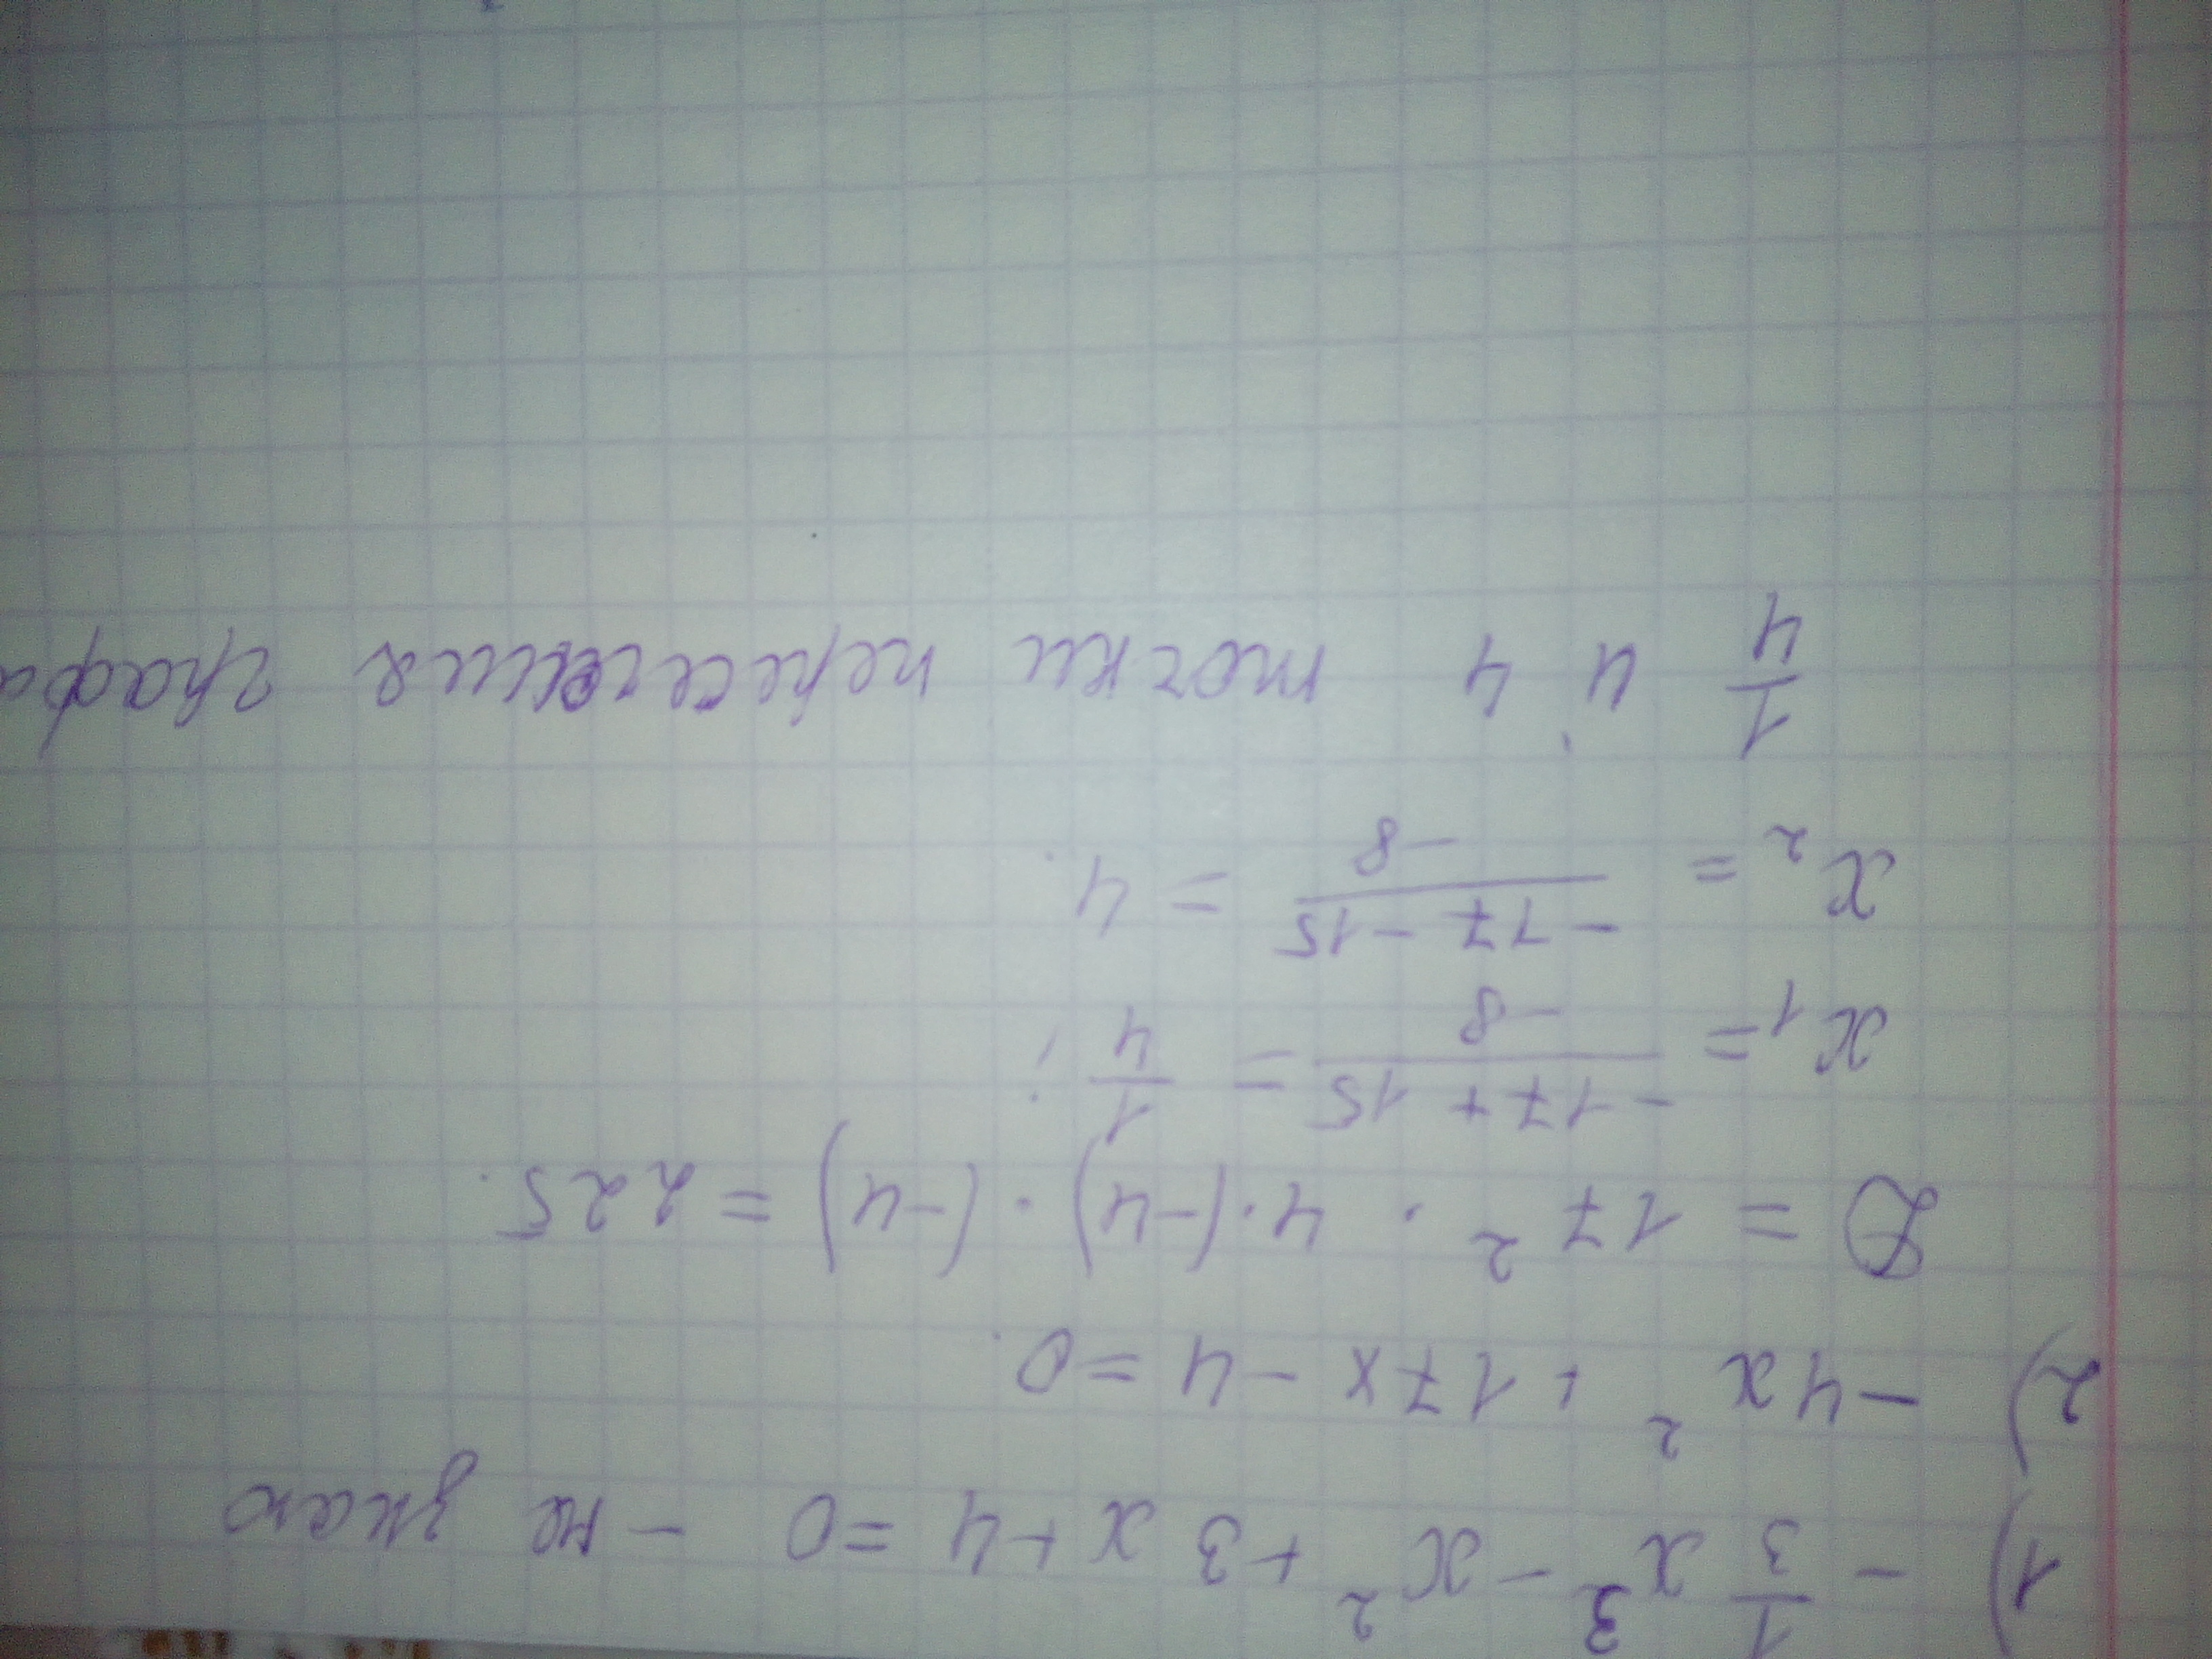 1) - 1/3 x³ - x² + 3x + 4 = 0 - не знаю
2) -4x² + 17x - 4 = 0.
D = 17² · 4·(-4)·(-4) = 225.
x₁ = (-17 + 15)/(-8) = 1/4 ;
x₂ = (-17 - 15)/(-8) = 4.
1/4 и 4 точки пересечения графи